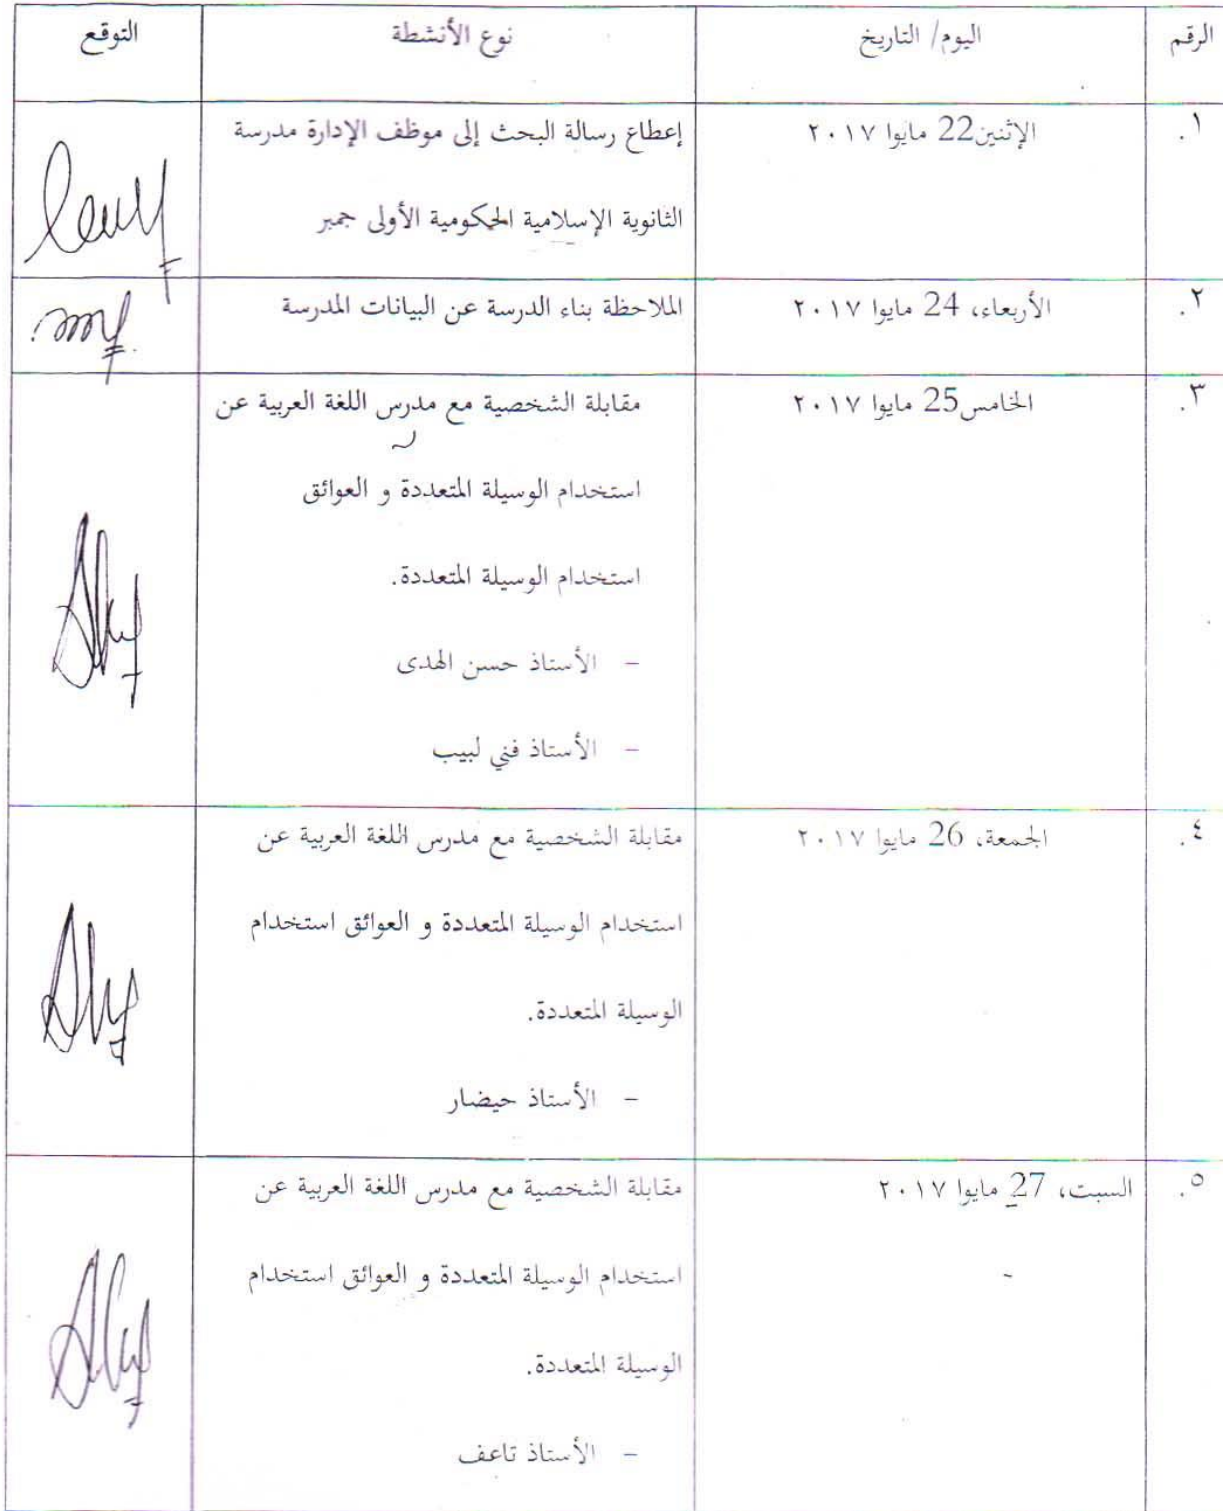 الرقم اليوم/ التاريخ نوع الأنشطة التوقع
١. الإثنين22 مايوا ٢٠١٧ إعطاع رسالة البحث إلى موظف الإدارة مدرسة
الثانوية الإسلامية الحكومية الأولى جمبر
٢. الأربعاء، 24 مايوا ٢٠١٧ الملاحظة بناء الدرسة عن البيانات المدرسة
٣. الخامس25 مايوا ٢٠١٧ مقابلة الشخصية مع مدرس اللغة العربية عن
استخدام الوسيلة المتعددة و العوائق
استخدام الوسيلة المتعددة.
- الأستاذ حسن الهدى
- الأستاذ فني لبيب
٤. الجمعة، 26 مايوا ٢٠١٧ مقابلة الشخصية مع مدرس اللغة العربية عن
استخدام الوسيلة المتعددة و العوائق استخدام
الوسيلة المتعددة.
- الأستاذ حيضار
٥. السبت، 27 مايوا ٢٠١٧ مقابلة الشخصية مع مدرس اللغة العربية عن
استخدام الوسيلة المتعددة و العوائق استخدام
الوسيلة المتعددة.
- الأستاذ تاعف